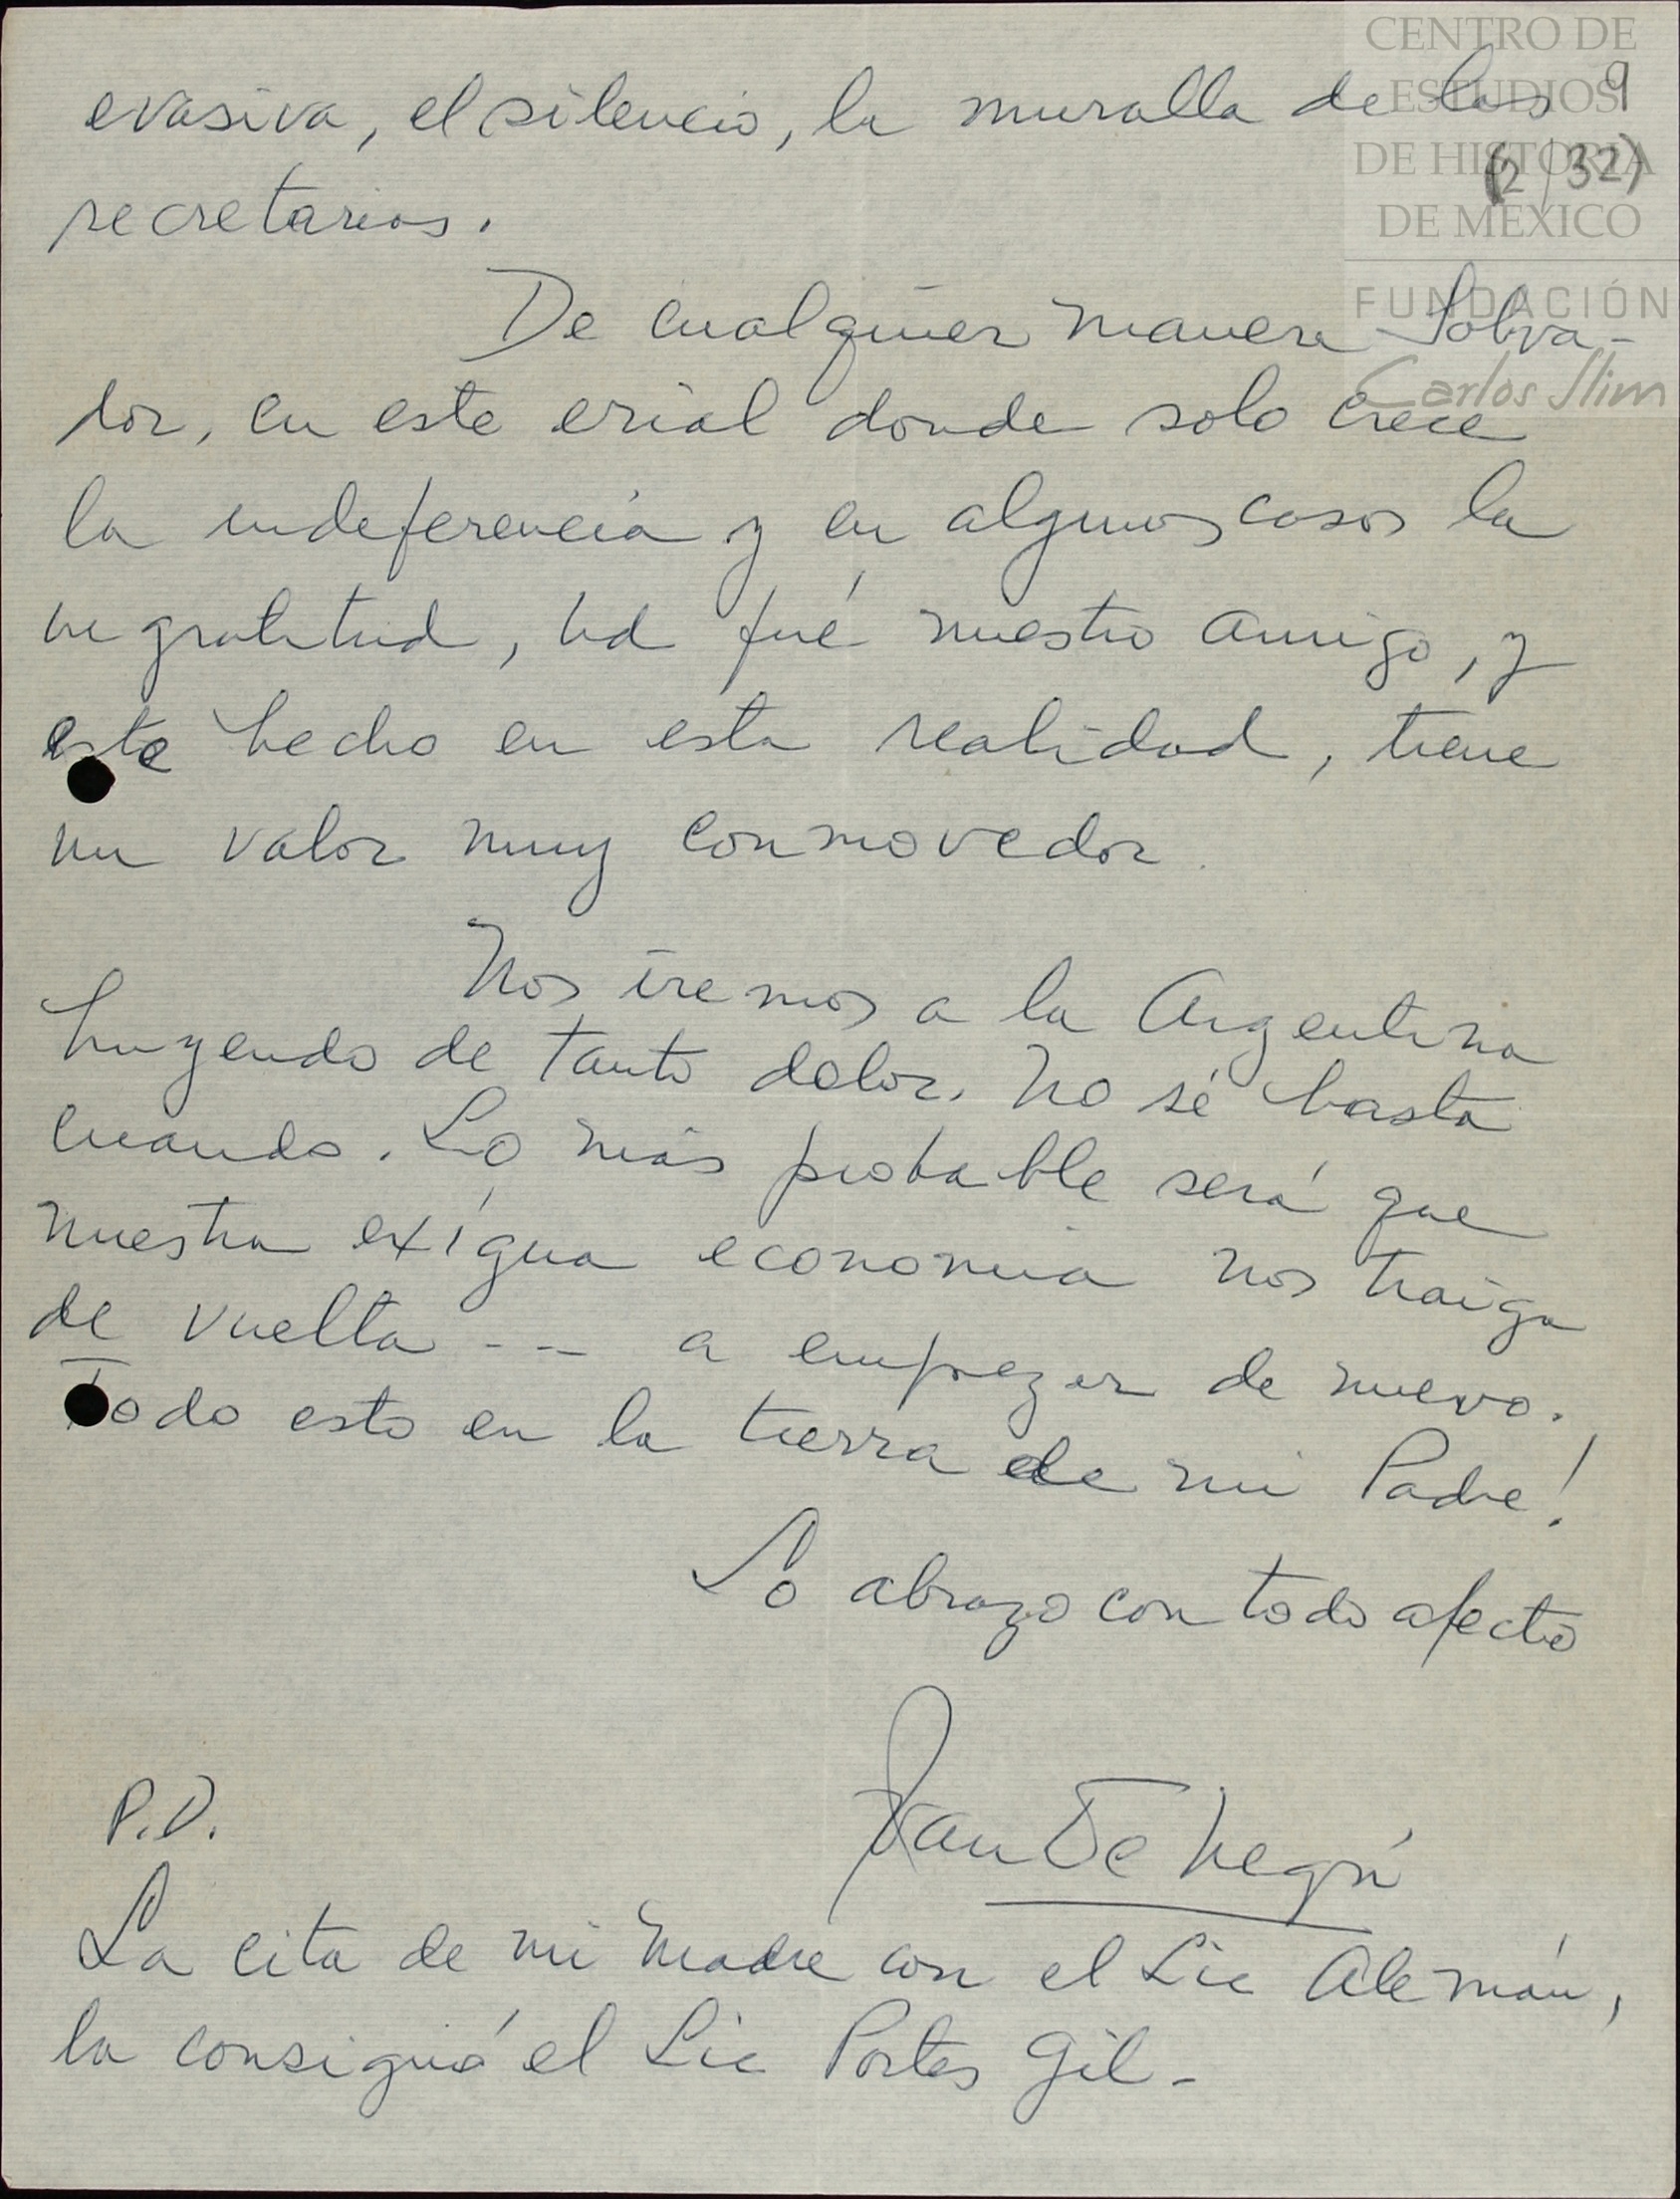 CENTRO DE
ESTUDIOS
DE HISTORIA
DE MÉXICO
FUNDACIÓN
Carlos Slim
9
(2/32)
evasiva, el silencio, la muralla de los
secretarios.
De cualquier manera Salva-
dor, en este erial donde solo crece
la indeferencia y en algunos casos la
ingratitud, Ud fué nuestro amigo, y
este hecho en esta realidad, tiene
un valor muy conmovedor.
Nos iremos a la Argentina
huyendo de tanto dolor. No sé hasta
cuando. Lo más probable será que
nuestra exígua economia nos traiga
de vuelta --- a empezar de nuevo.
Todo esto en la tierra de mi Padre!
Lo abrazo con todo afecto
Juan De Negri
P.D.
La cita de mi Madre con el Lic Alemán,
la consiguió el Lic Portes Gil-